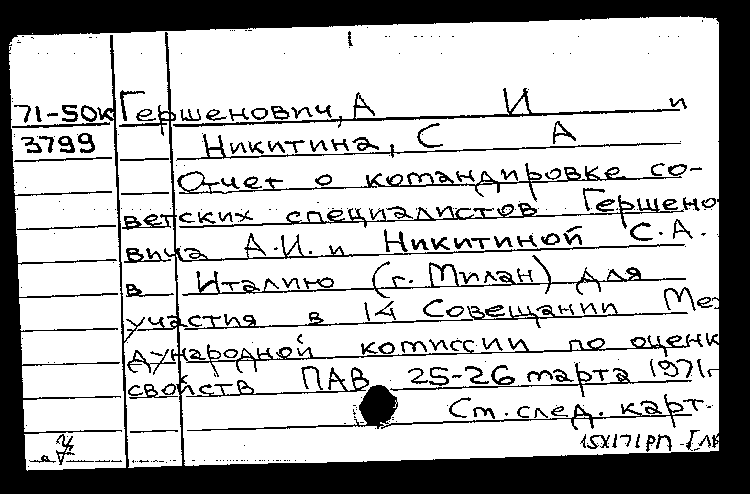 71-50к Гершенович, А И и
3799 Никитина, С А
Отчет о командировке со-
ветских специалистов Гершено
вича А.И. и Никитиной С.А.
в Италию (г. Милан) для
участия в 14 Совещании Меж
дународной комиссии по оценк
свойств ПАВ 25-26 марта 1971г
См. след. карт.
15X171РП